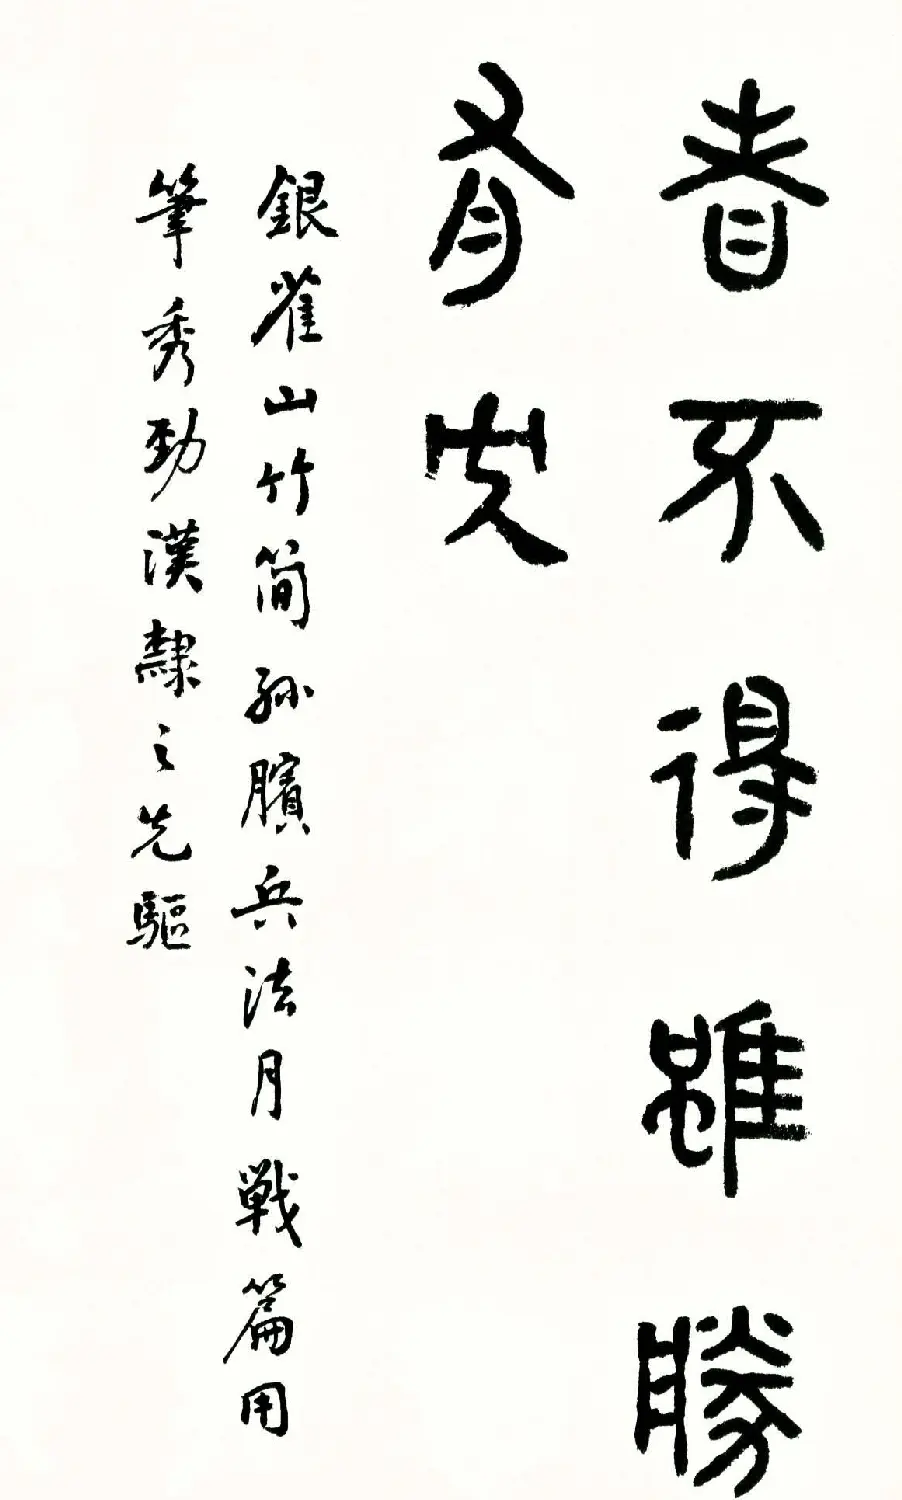 者不得雖勝
有央
銀雀山竹簡孫臏兵法月戦篇用
筆秀勁漢隸之先驅